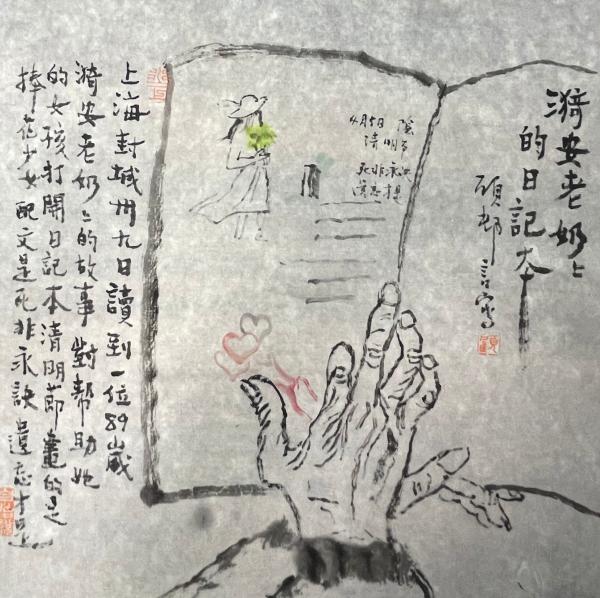 漪安老奶〻
的日記本
4月5日
清明
死非永
遺忘
上海封城卅九日讀到一位89歲
漪安老奶〻的故事對幫助她
的女孩打開日記本清明節畫的是
捧花少女配文是死非永訣遺忘才是